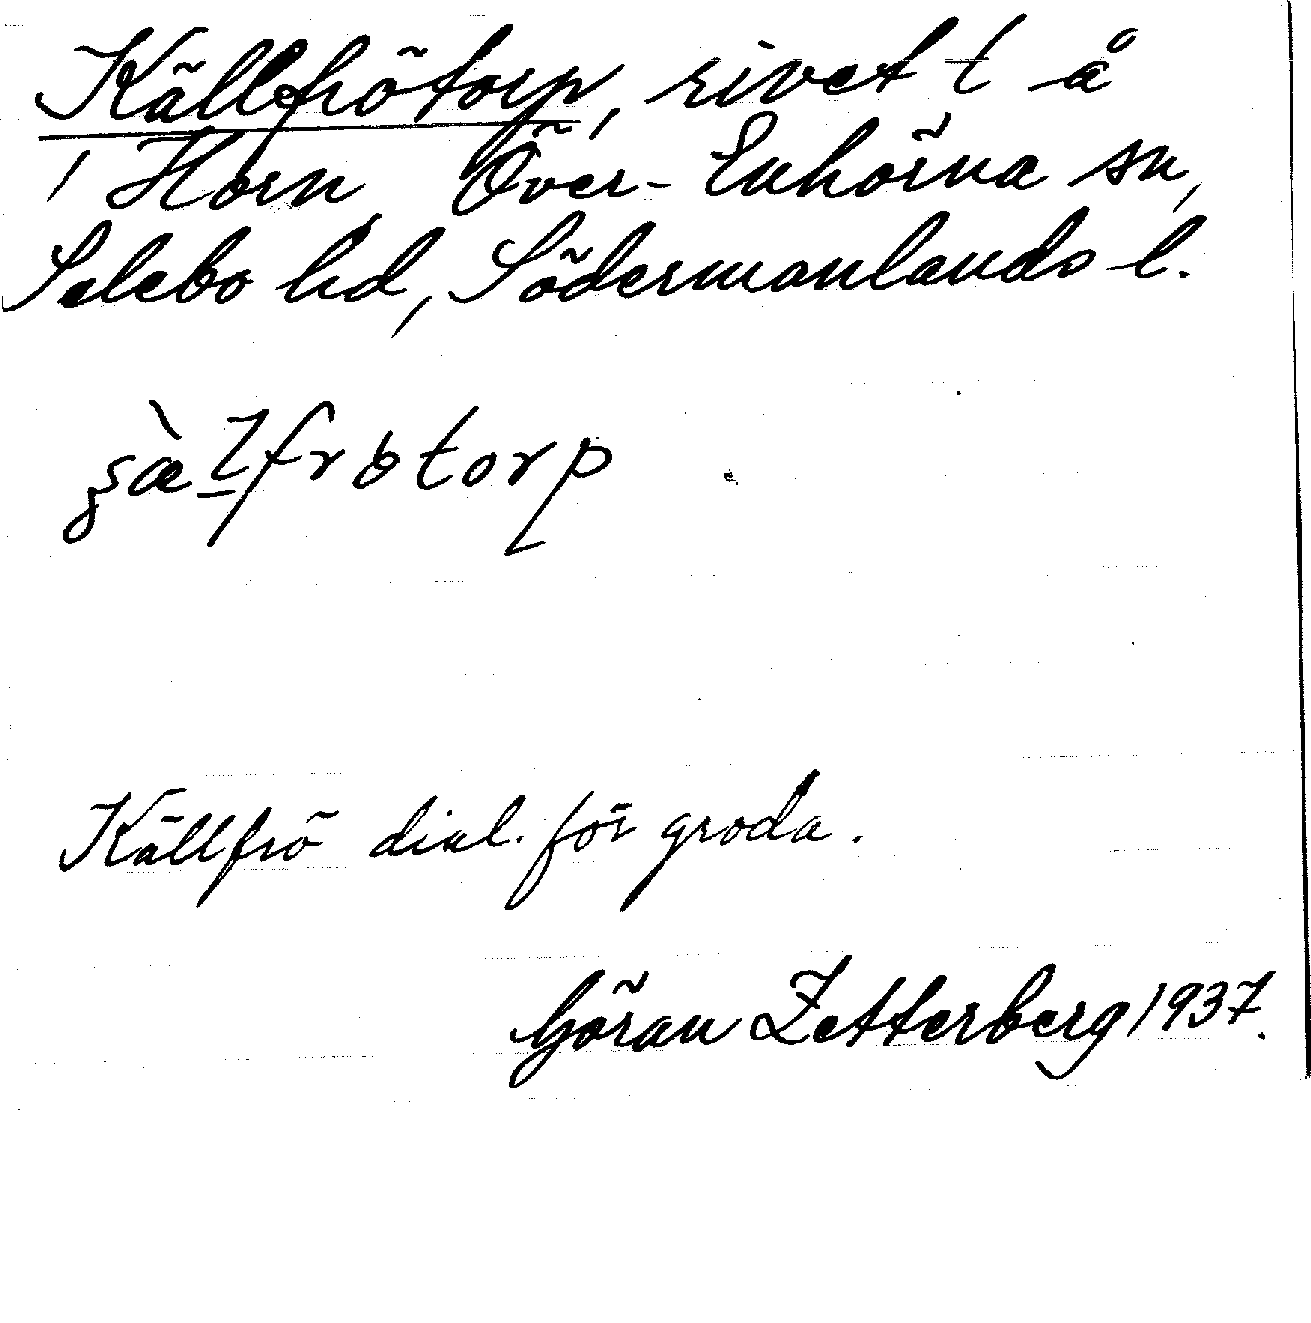 Källfrötorp, rivet t å
1 Horn, Över-Enhörna sn,
Selebo hd, Södermanlands l.
Källfrö dial. för groda.
Göran Zetterberg 1937.